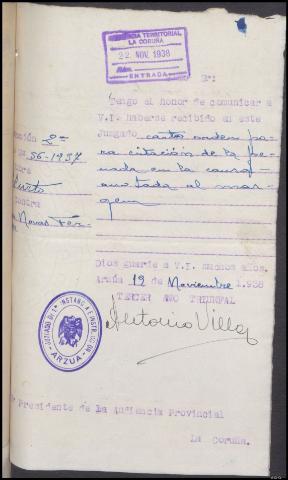 AUDIENCIA TERRITORIAL
LA CORUÑA
22 NOV. 1938
Núm.
ENTRADA
Tengo el honor de comunicar a
V.I. haberse recibido en este
Juzgado carta orden pa
ra citación de la pe
nada en la causa
anotada al mar
gen
2º
56-1937
contra
Dios guarde a V.I. muchos años.
Arzúa 19 de Noviembre 1.938
TERCER AÑO TRIUNFAL
Antonio Villar
JUZGADO DE 1ª INSTANCIA E INSTRUCCION
ARZUA
Presidente de la Audiencia Provincial
La Coruña.